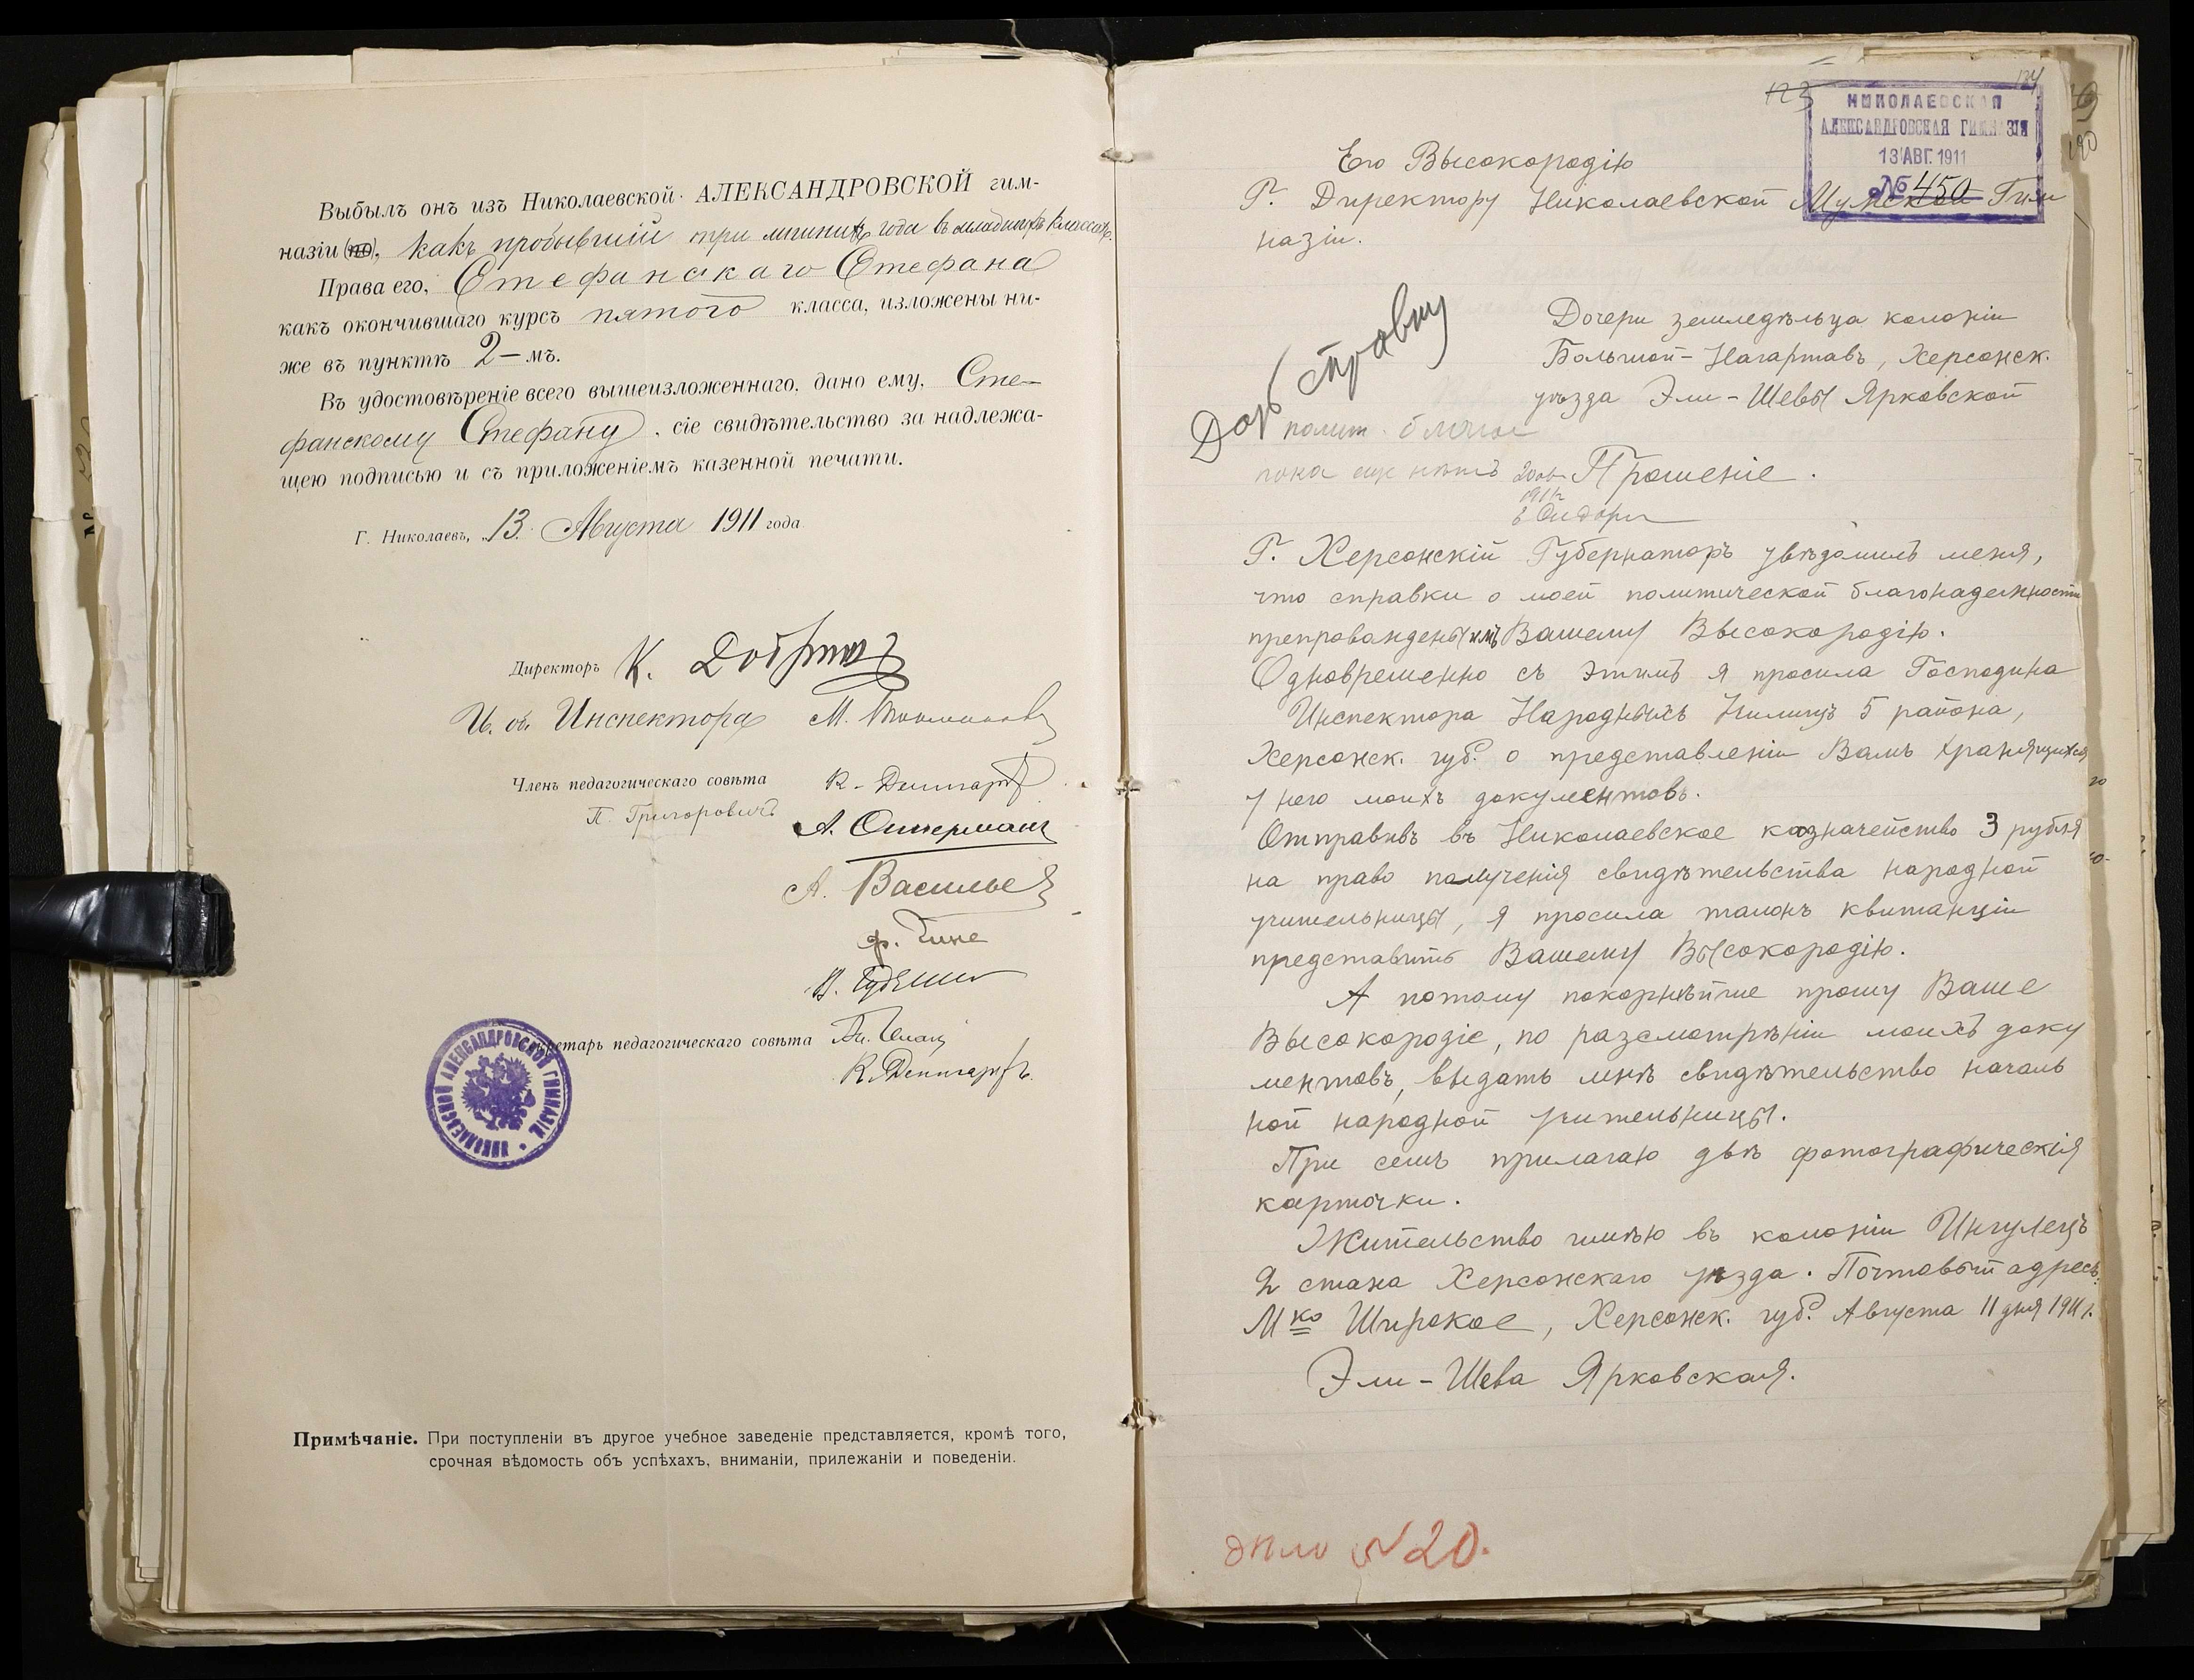 Выбылъ онъ изъ Николаевской АЛЕКСАНДРОВСКОЙ гим-
назіи (по), какъ пробывшій три лишнихъ года въ младшихъ классахъ.
Права его, Стефанскаго Стефана
какъ окончившаго курсъ пятого класса, изложены ни-
же въ пунктѣ 2-мъ.
Въ удостовѣреніе всего вышеизложеннаго, дано ему, Сте-
фанскому Стефану, сіе свидѣтельство за надлежа-
щею подписью и съ приложеніемъ казенной печати.
Г. Николаевъ, 13 Августа 1911 года
Директоръ К.
И. об. Инспектора М.
Членъ педагогическаго совѣта
П. Григоровичъ
А.
А. Васильев
Ф.
В.
Секретарь педагогическаго совѣта
НИКОЛАЕВСКОЙ АЛЕКСАНДРОВСКОЙ ГИМНАЗІИ
Примѣчаніе. При поступленіи въ другое учебное заведеніе представляется, кромѣ того,
срочная вѣдомость объ успѣхахъ, вниманіи, прилежаніи и поведеніи.
123
124
НИКОЛАЕВСКАЯ
АЛЕКСАНДРОВСКАЯ ГИМНАЗІЯ
13 АВГ. 1911
№ 450
Его Высокородію
Г. Директору Николаевской Мужской Гим
назіи.
Дочери земледѣльца колоніи
Большой-Нагартавъ, Херсонск.
уѣзда Эли-Шевы Ярковской
справку
полит.
пока еще нѣтъ
Прошеніе.
Г. Херсонскій Губернаторъ увѣдомилъ меня,
что справки о моей политической благонадежности
препровандены имъ Вашему Высокородію.
Одновременно съ этимъ я просила Господина
Инспектора Народныхъ Училищъ 5 района,
Херсонск. губ. о представленіи Вамъ хранящихся
у него моихъ документовъ.
Отправивъ въ Николаевское казначейство 3 рубля
на право полученія свидѣтельства народной
учительницы, я просила талонъ квитанціи
представить Вашему Высокородію.
А потому покорнѣйше прошу Ваше
Высокородіе, по разсмотрѣніи моихъ доку
ментовъ, выдать мнѣ свидѣтельство началь
ной народной учительницы.
При семъ прилагаю двѣ фотографическія
карточки.
Жительство имѣю въ колоніи Ингулецъ
2 стана Херсонскаго уѣзда. Почтовый адресъ:
Мко Широкое, Херсонск. губ. Августа 11 дня 1911 г.
Эли-Шева Ярковская.
дѣло № 20.